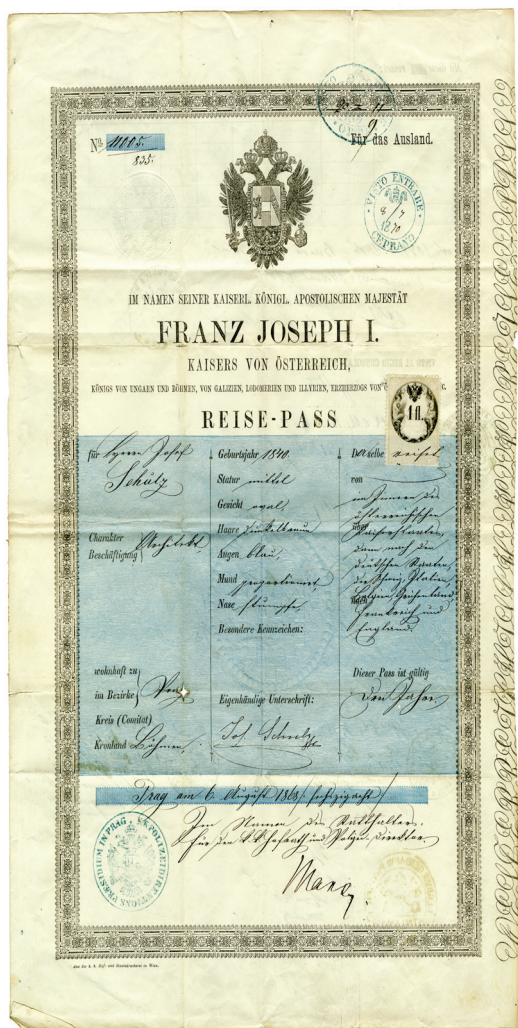 No. 11005.
835.
9
Für das Ausland.
VISTO ENTRARE
8/7
1870
CEPRANO
IM NAMEN SEINER KAISERL. KÖNIGL. APOSTOLISCHEN MAJESTÄT
FRANZ JOSEPH I.
KAISERS VON ÖSTERREICH,
KÖNIGS VON UNGARN UND BÖHMEN, VON GALIZIEN, LODOMERIEN UND ILLYRIEN, ERZHERZOGS VON C.
1 fl.
REISE-PASS
für Herrn Josef
Schulz
Charakter
Beschäftigung Architekt
wohnhaft zu
im Bezirke Prag
Kreis (Comitat)
Kronland Böhmen
Geburtsjahr 1840.
Statur mittel
Gesicht oval
Haare dunkelbraun
Augen blau
Mund proportionirt
Nase stumpf
Besondere Kennzeichen:
Eigenhändige Unterschrift:
Jos. Schulz
Derselbe reiset
von
im Innern des
österreichischen
über Kaiserstaates,
dann nach den
deutschen Staaten,
die Schweiz, Italien,
nach Belgien, Griechenland
Frankreich und
England.
Dieser Pass ist gültig
drei Jahre
Prag am 6. August 1868 / sechzigacht /
Im Namen des Statthalters.
Für den k. k. Hofrath und Polizei Direktor.
K. K. POLIZEIDIRECTIONS PRÆSIDIUM IN PRAG
Aus der k. k. Hof- und Staatsdruckerei in Wien.